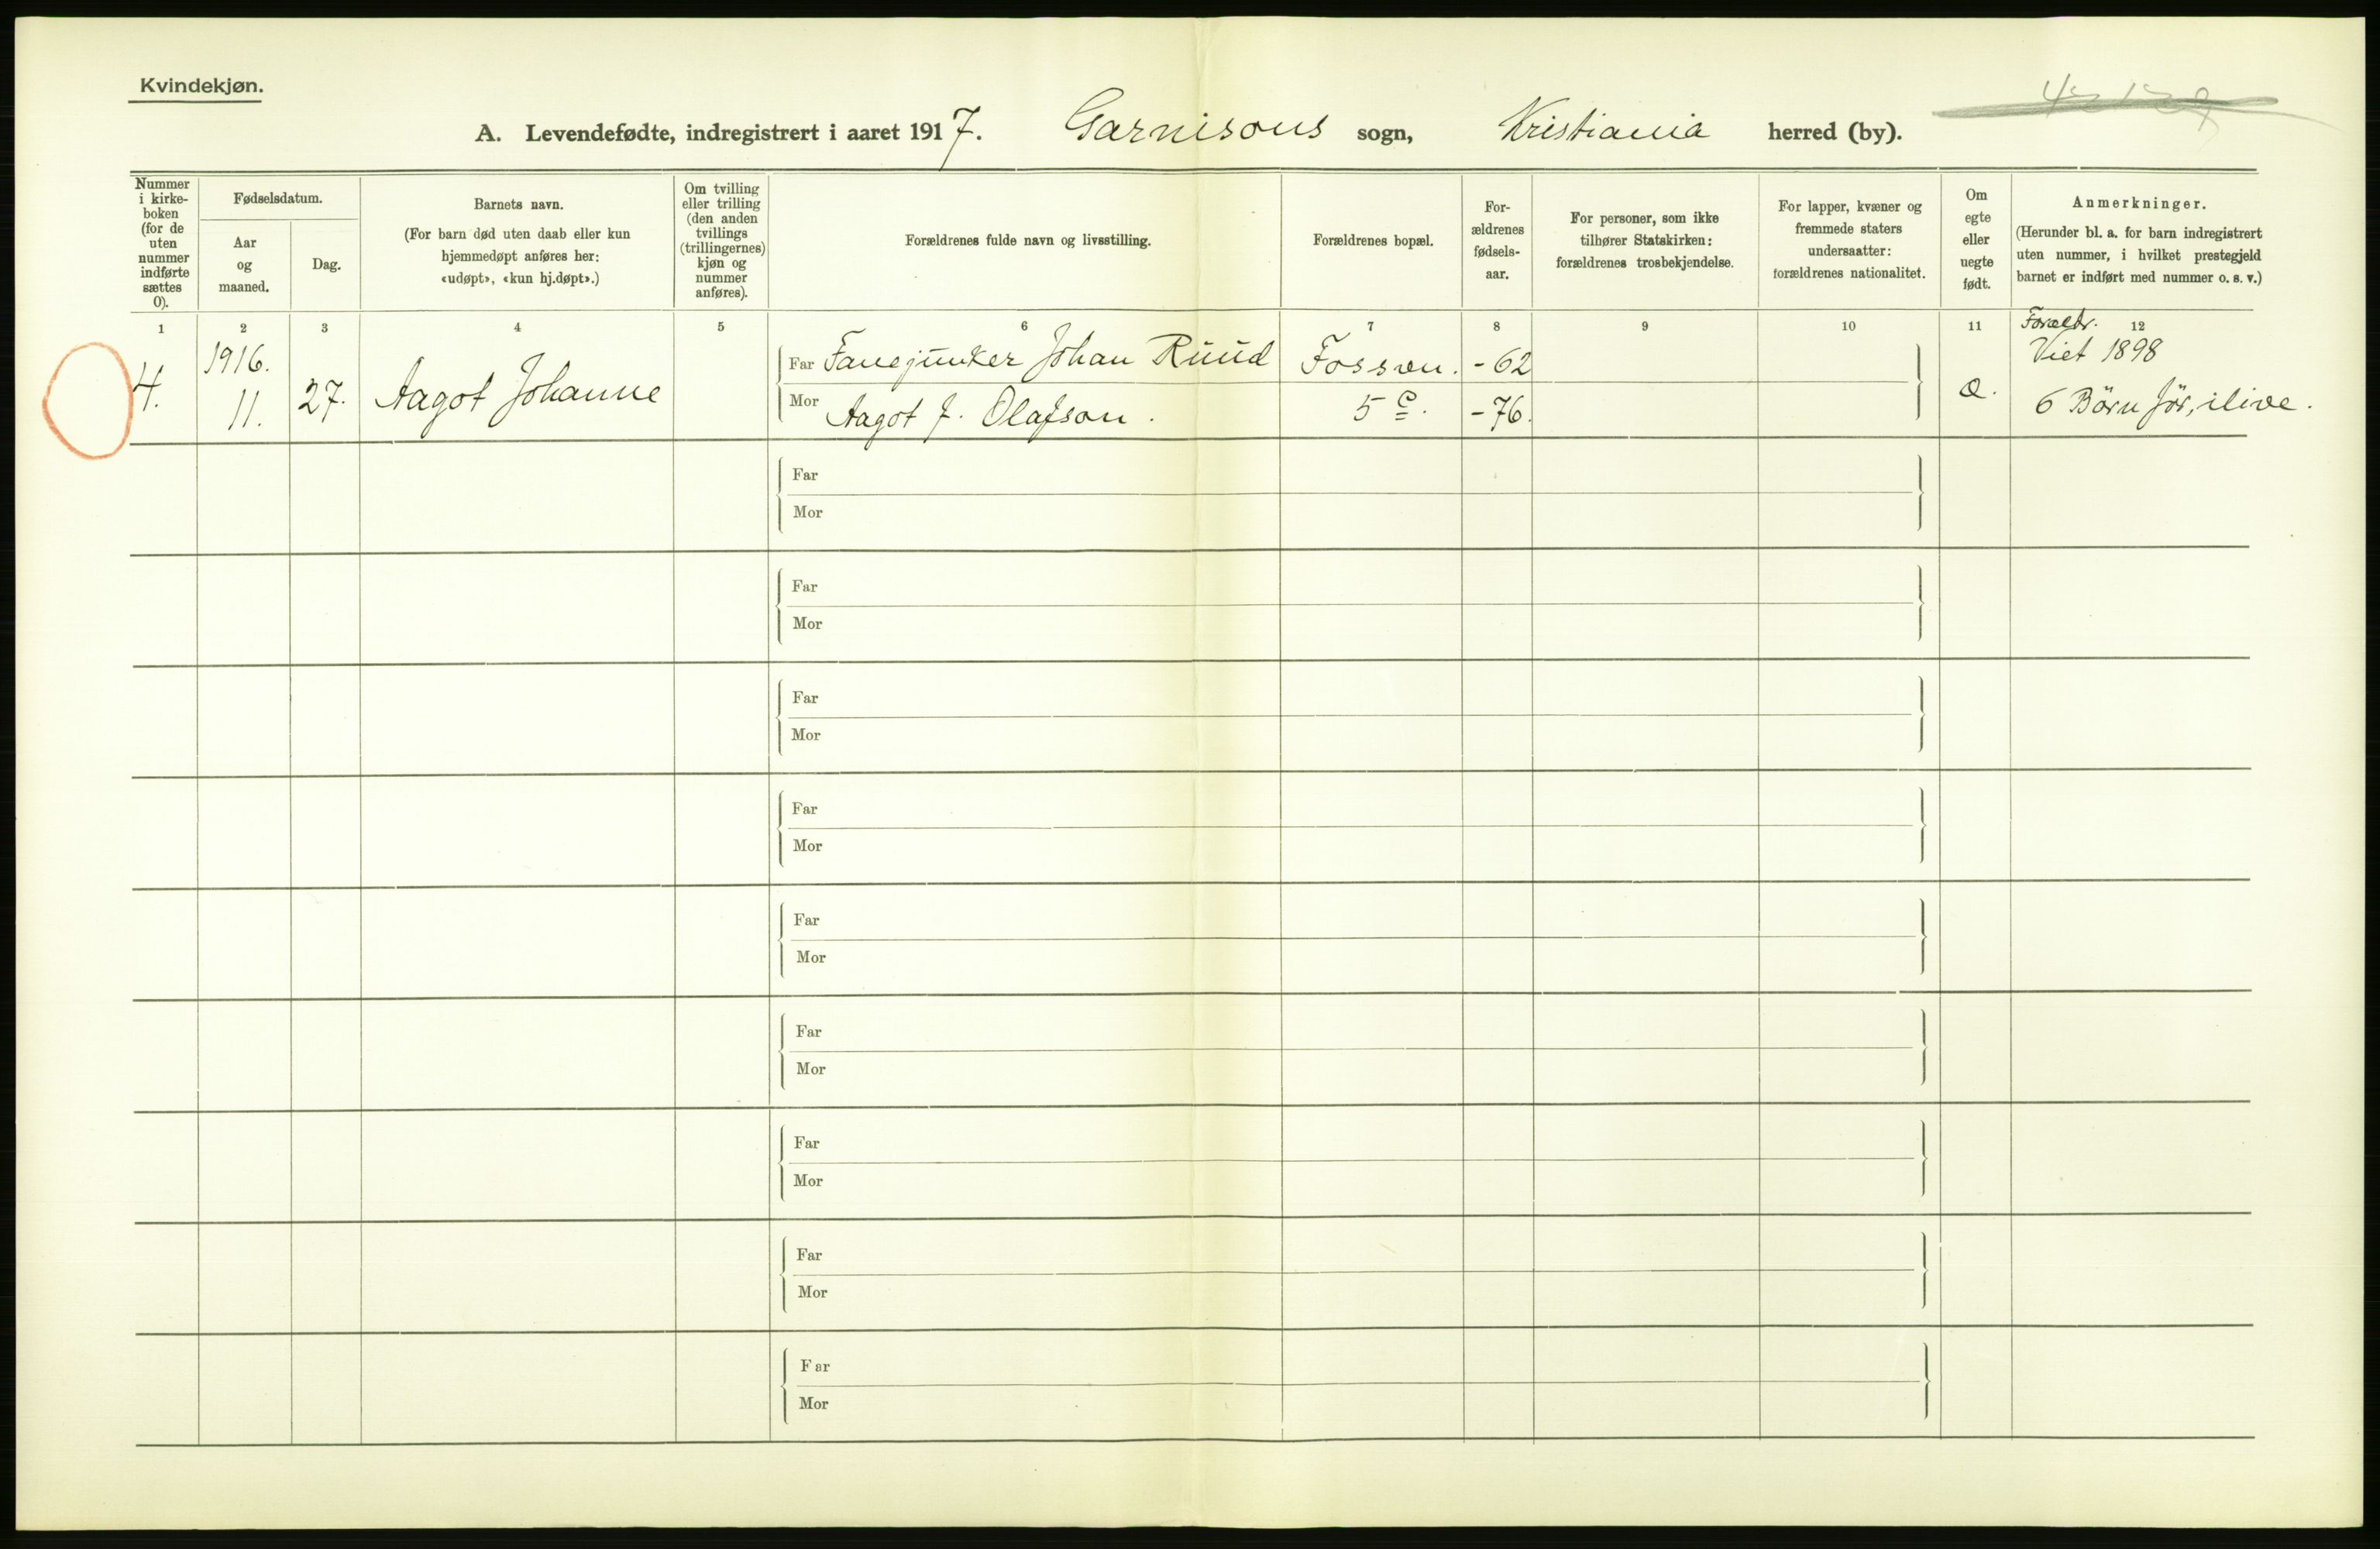 Kvindekjøn.
A. Levendefødte, indregistrert i aaret 1917. Garnisons sogn, Kristiania herred (by).
Nummer i kirke-boken (for de uten nummer indførte sættes 0).
Fødselsdatum.
Aar og maaned.
Dag.
Barnets navn.
(For barn død uten daab eller kun
hjemmedøpt anføres her:
«udøpt», «kun hj.døpt».)
Om tvilling
eller trilling
(den anden
tvillings
(trillingernes)
kjøn og
nummer
anføres).
Forældrenes fulde navn og livsstilling.
Forældrenes bopæl.
For-
ældrenes
fødsels-
aar.
For personer, som ikke
tilhører Statskirken:
forældrenes trosbekjendelse.
For lapper, kvæner og
fremmede staters
undersaatter:
forældrenes nationalitet.
Om
egte
eller
uegte
født.
Anmerkninger.
(Herunder bl. a. for barn indregistrert
uten nummer, i hvilket prestegjeld
barnet er indført med nummer o. s. v.)
1 2 3 4 5 6 7 8 9 10 11 12
4. 1916. 11. 27. Aagot Johanne
Far Fanejunker Johan Ruud Fossvn. -62
Mor Aagot J. Olafson. 5 c. -76.
æ.
Forældr.
Viet 1898
6 Børn før, ilive.
Far
Mor
Far
Mor
Far
Mor
Far
Mor
Far
Mor
Far
Mor
Far
Mor
Far
Mor
Far
Mor